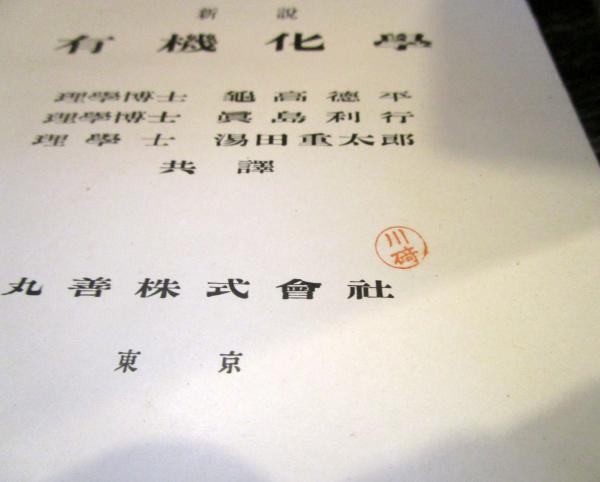 新說
有機化學
理學博士 龜高德平
理學博士 眞島利行
理學士 湯田重太郎
共譯
川﨑
丸善株式會社
東京